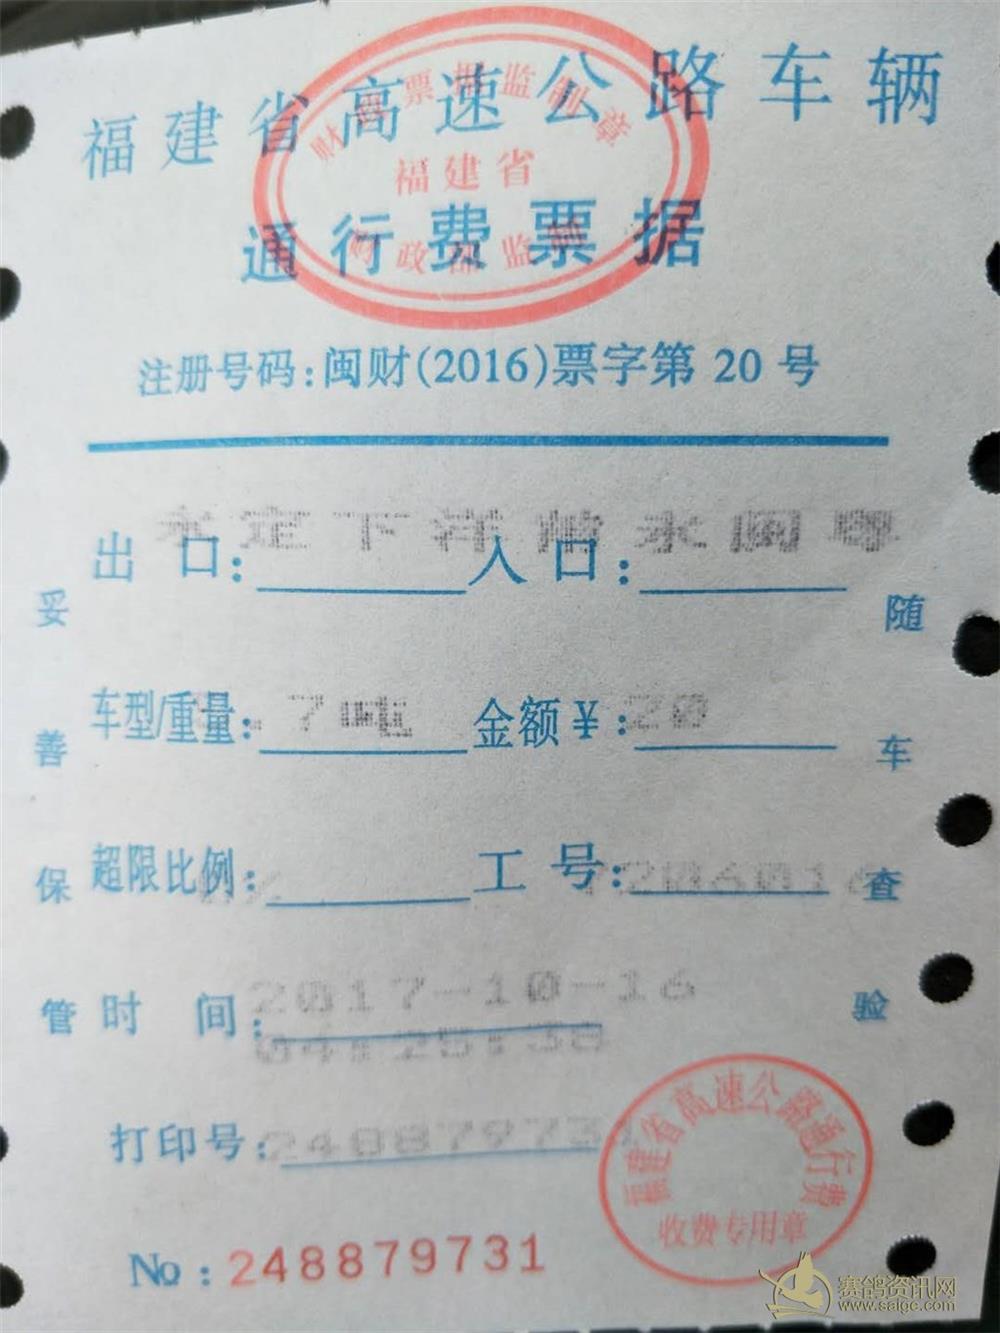 福建省高速公路车辆
通行费票据
财政票据监制章
福建省
财政部监制
注册号码:闽财(2016)票字第 20 号
出 口: 永定下洋 入 口: 永闽粤
车型/重量: .7吨 金额¥: 20
超限比例: 工 号: 206016
时 间: 2017-10-16
04:25:38
打印号: 248879731
No: 248879731
妥善保管
随车查验
福建省高速公路通行费
收费专用章
赛鸽资讯网
www.saigc.com